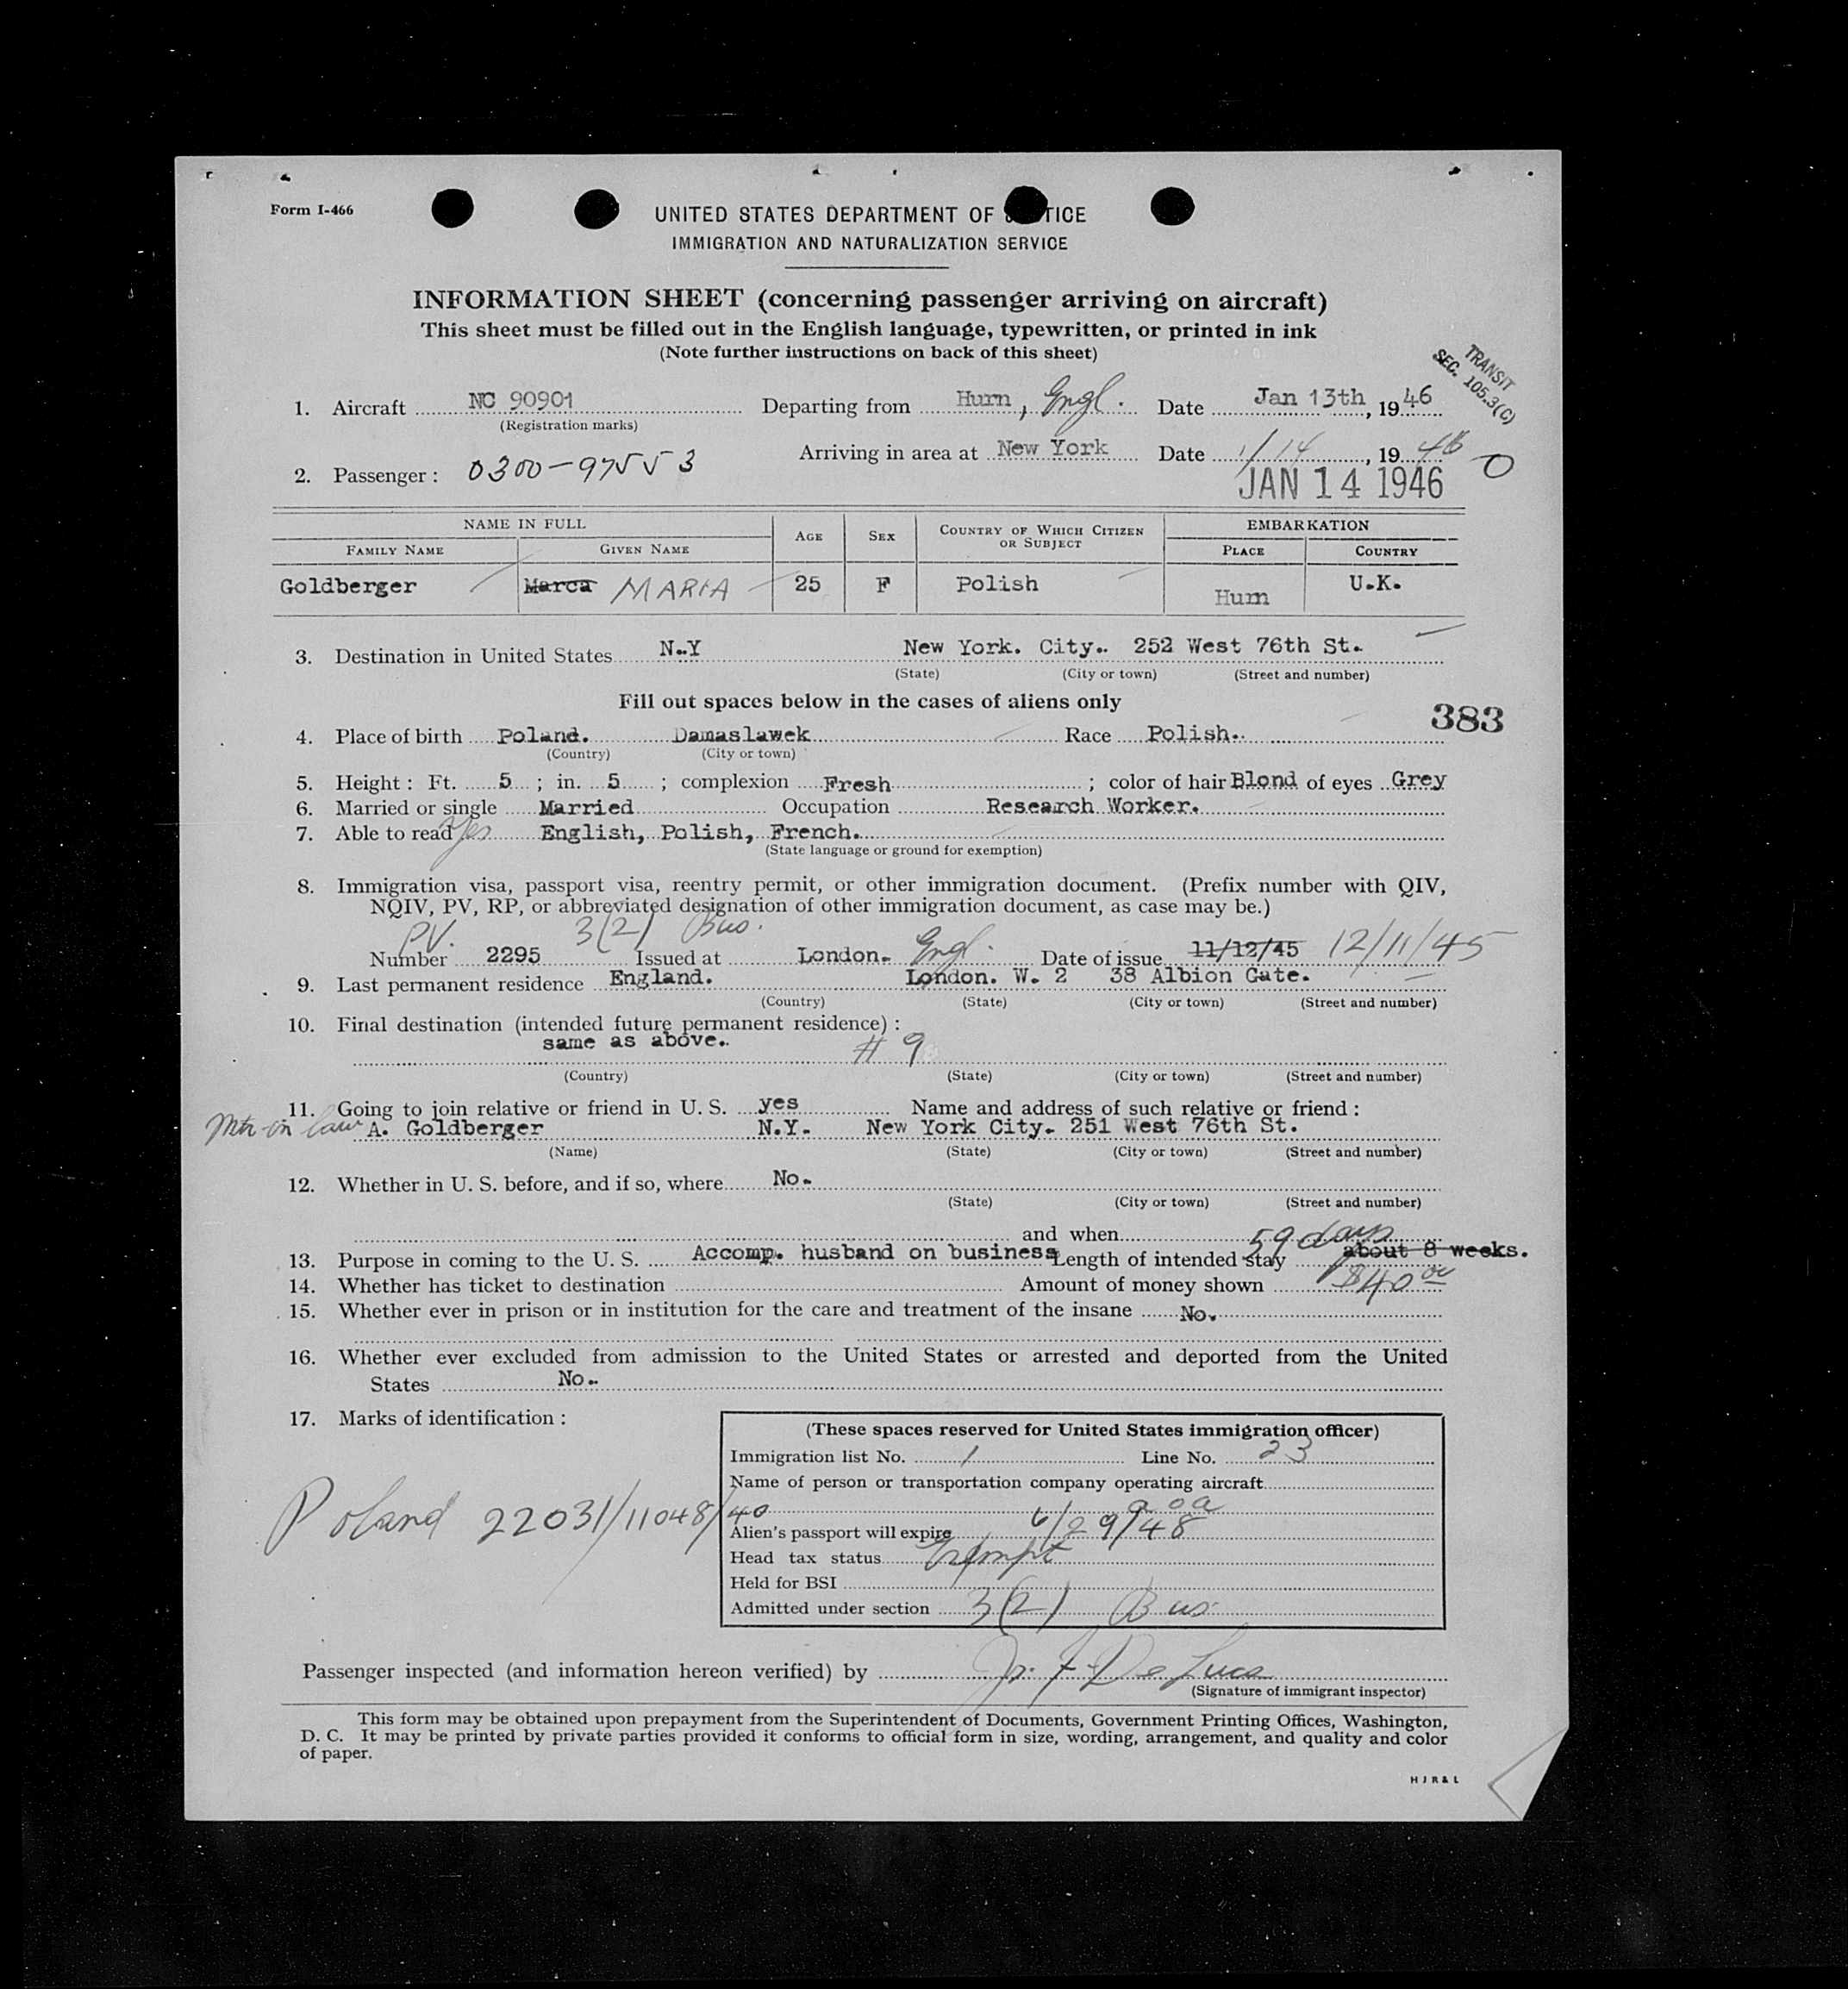 Form I-466
UNITED STATES DEPARTMENT OF TICE
IMMIGRATION AND NATURALIZATION SERVICE
INFORMATION SHEET (concerning passenger arriving on aircraft)
This sheet must be filled out in the English language, typewritten, or printed in ink
(Note further instructions on back of this sheet)
TRANSIT
SEC. 105.3(C)
1. Aircraft NC 90901 Departing from Hurn, Engl. Date Jan 13th, 1946
(Registration marks)
Arriving in area at New York Date 1/14, 1946
2. Passenger: 0300-97553 JAN 14 1946 0
NAME IN FULL AGE SEX COUNTRY OF WHICH CITIZEN OR SUBJECT EMBARKATION
FAMILY NAME GIVEN NAME PLACE COUNTRY
Goldberger Marca MARIA 25 F Polish Hurn U.K.
3. Destination in United States N.Y New York. City. 252 West 76th St.
(State) (City or town) (Street and number)
Fill out spaces below in the cases of aliens only
383
4. Place of birth Poland. Damaslawek Race Polish.
(Country) (City or town)
5. Height: Ft. 5; in. 5; complexion Fresh; color of hair Blond of eyes Grey
6. Married or single Married Occupation Research Worker.
7. Able to read Yes English, Polish, French.
(State language or ground for exemption)
8. Immigration visa, passport visa, reentry permit, or other immigration document. (Prefix number with QIV,
NQIV, PV, RP, or abbreviated designation of other immigration document, as case may be.)
PV. 3(2) Bus.
Number 2295 Issued at London. Engl. Date of issue 11/12/45 12/11/45
9. Last permanent residence England. London. W. 2 38 Albion Gate.
(Country) (State) (City or town) (Street and number)
10. Final destination (intended future permanent residence):
same as above. # 9
(Country) (State) (City or town) (Street and number)
11. Going to join relative or friend in U. S. yes Name and address of such relative or friend:
Mtr-in law A. Goldberger N.Y. New York City. 251 West 76th St.
(Name) (State) (City or town) (Street and number)
12. Whether in U. S. before, and if so, where No.
(State) (City or town) (Street and number)
and when 59 days
13. Purpose in coming to the U. S. Accomp. husband on business Length of intended stay about 8 weeks.
14. Whether has ticket to destination Amount of money shown $40 00
15. Whether ever in prison or in institution for the care and treatment of the insane No.
16. Whether ever excluded from admission to the United States or arrested and deported from the United
States No.
17. Marks of identification:
(These spaces reserved for United States immigration officer)
Immigration list No. 1 Line No. 23
Name of person or transportation company operating aircraft
Poland 22031/11048/40 aoa
Alien's passport will expire 6/29/48
Head tax status Exempt
Held for BSI
Admitted under section 3(2) Bus
Passenger inspected (and information hereon verified) by De Luca
(Signature of immigrant inspector)
This form may be obtained upon prepayment from the Superintendent of Documents, Government Printing Offices, Washington,
D. C. It may be printed by private parties provided it conforms to official form in size, wording, arrangement, and quality and color
of paper.
H J R & L